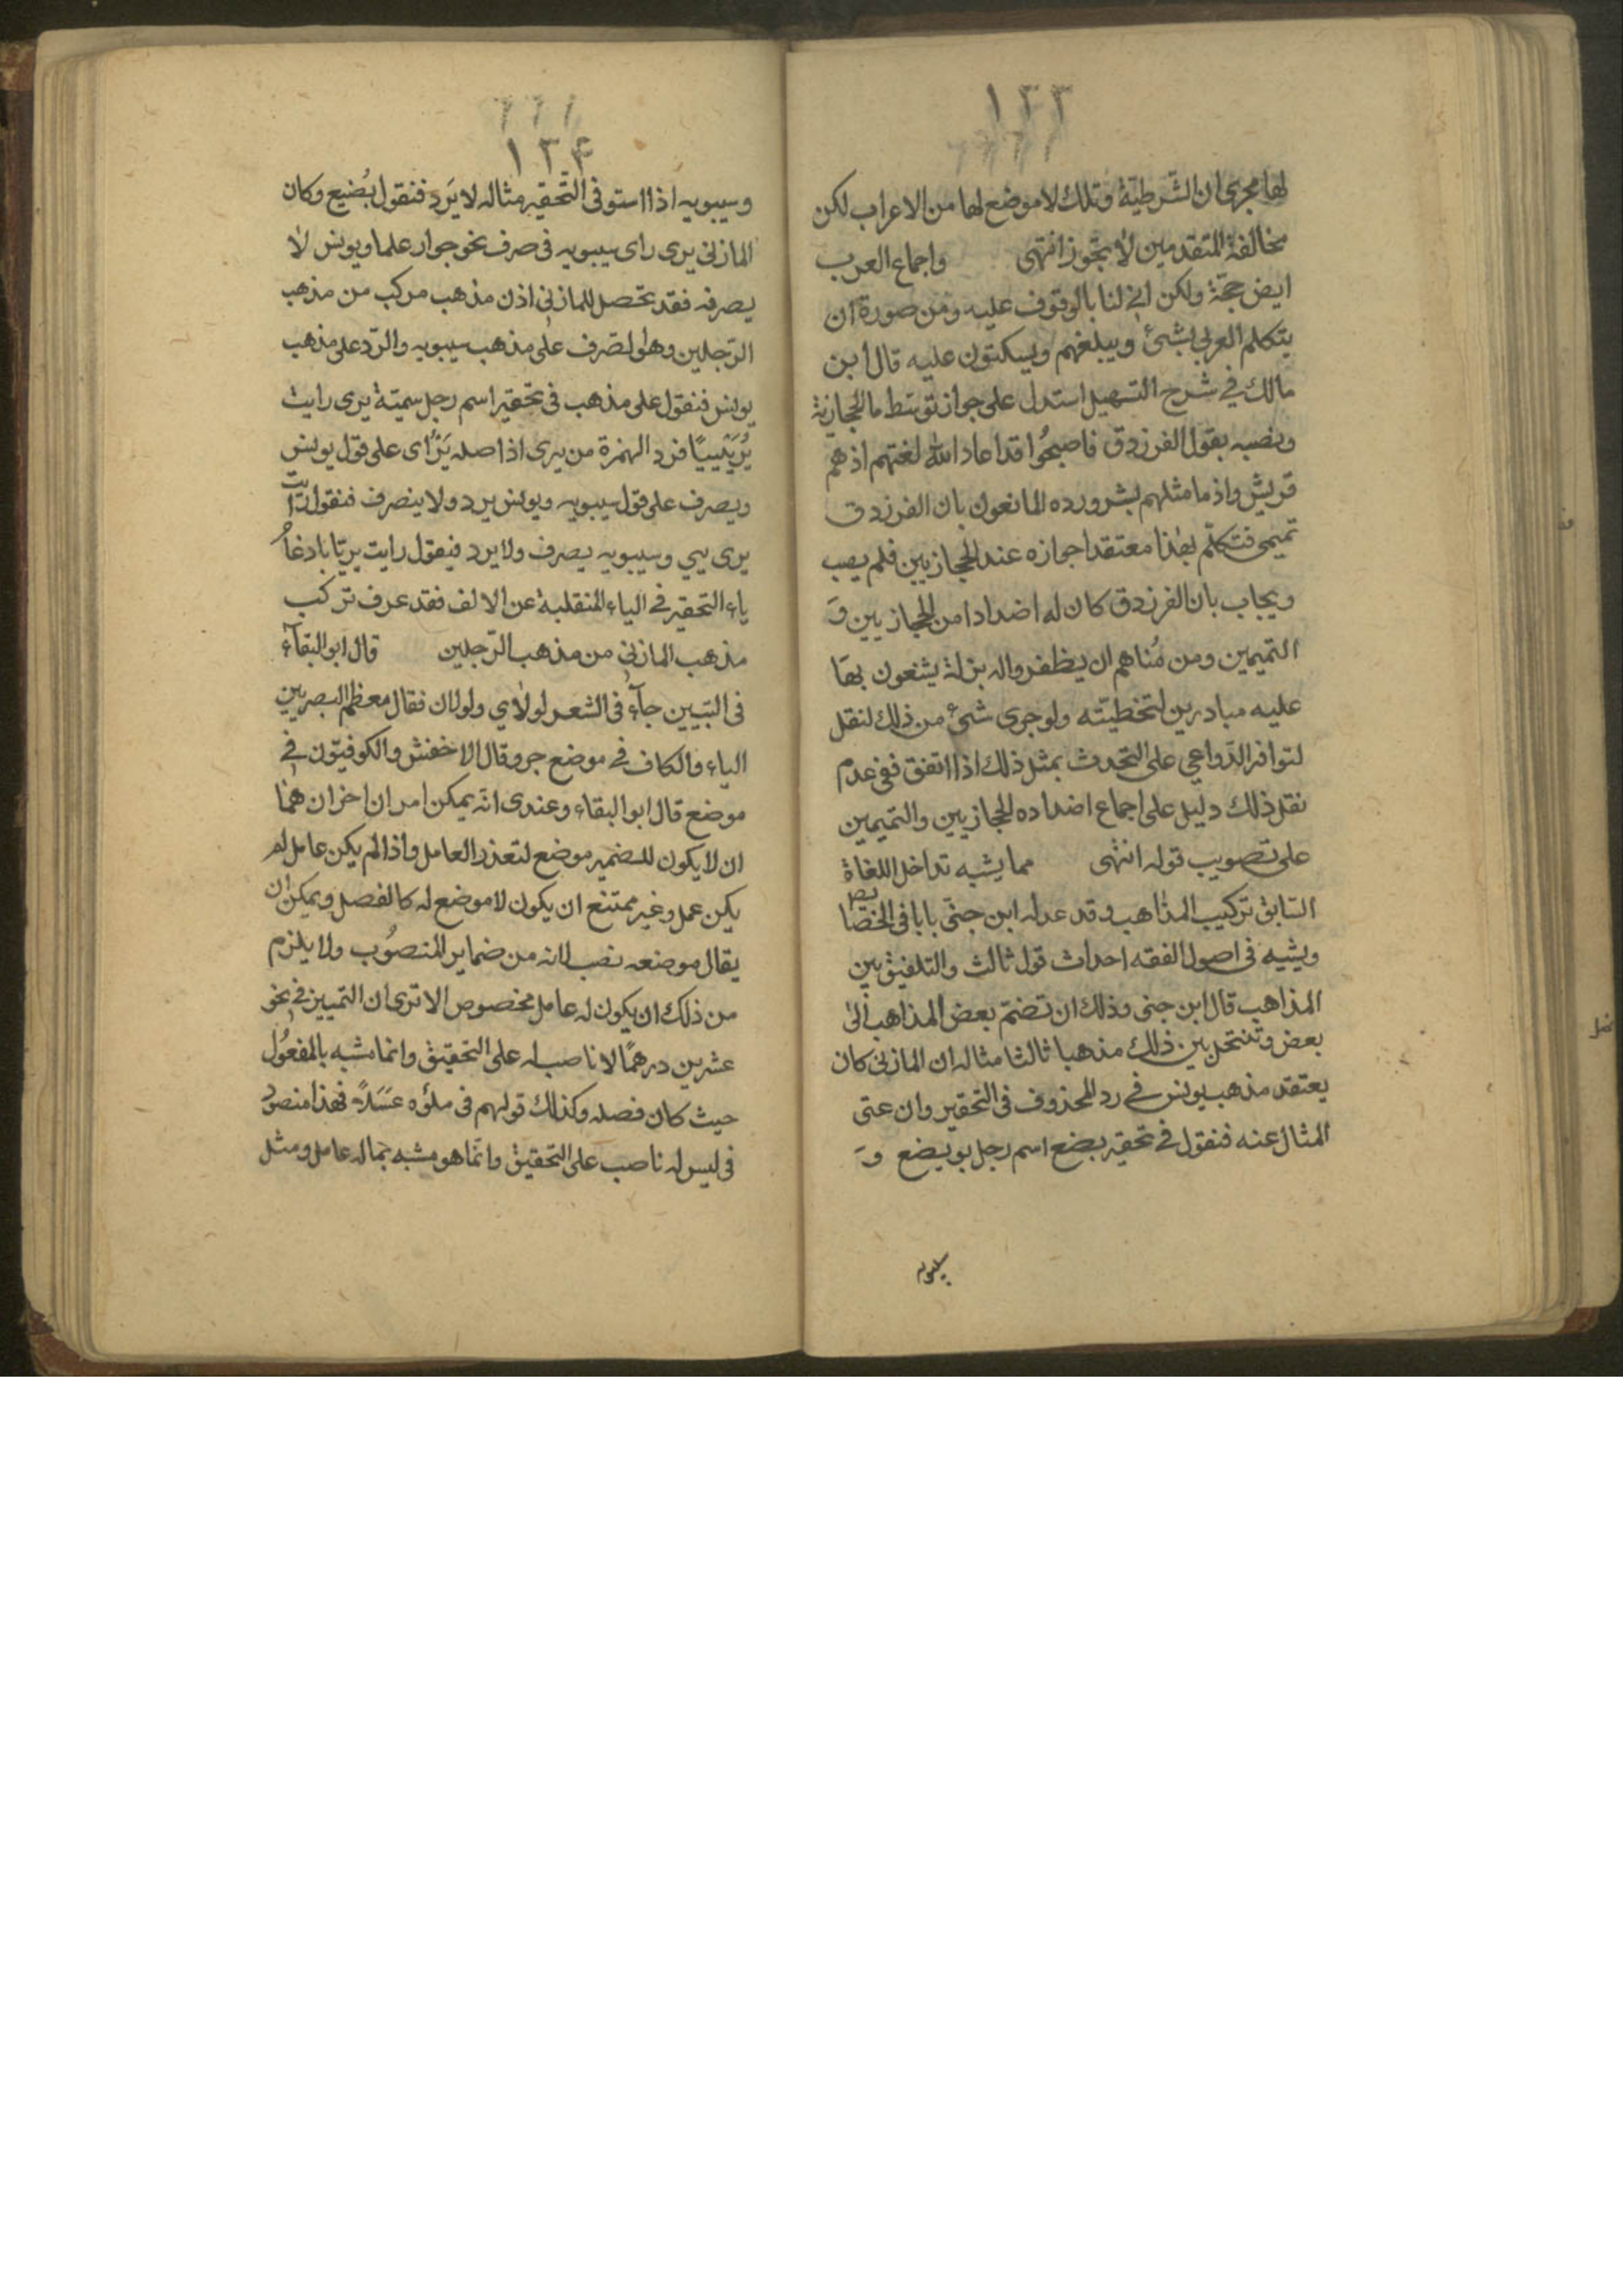 ١٣٣
لها مجرى ان الشرطية وتلك لا موضع لها من الاعراب لكن
مخالفة المتقدمين لا يجوز انتهى واجماع العرب
ايض حجة ولكن انى لنا بالوقوف عليه ومن صورة ان
يتكلم العربي بشئ ويبلغهم ويسكتون عليه قال ابن
مالك في شرح التسهيل استدل على جواز توسط ما الحجازية
ونصبه بقول الفرزدق فاصبحوا قد اعاد الله لغتهم اذ هم
قريش واذ ما مثلهم بشر ورده المانعون بان الفرزدق
تميمى فتكلم بهذا معتقدا جوازه عند الحجازيين فلم يصب
ويجاب بان الفرزدق كان له اضدادا من الحجازيين و
التميمين ومن مناهم ان يظفروا له بزلة يشنعون بها
عليه مبادرين لتخطيئته ولو جرى شئ من ذلك لنقل
لتوافر الدواعي على التحدث بمثل ذلك اذا اتفق ففي عدم
نقل ذلك دليل على اجماع اضداده الحجازيين والتميمين
على تصويب قوله انتهى مما يشبه تداخل اللغاة
السابق تركيب المذاهب وقد عدله ابن جنى بابا في الخصايص
ويشبه في اصول الفقه احداث قول ثالث والتلفيق بين
المذاهب قال ابن جنى وذلك ان تضم بعض المذاهب الى
بعض وتنتحل بين ذلك مذهبا ثالثا مثاله ان المازني كان
يعتقد مذهب يونس في رد المحذوف في التحقير وان عنى
المثال عنه فنقول في تحقير بضع اسم رجل بويضع و
سيبويه
١٣۴
وسيبويه اذا استوفى التحقير مثاله لا يرد فنقول بضيع وكان
المازني يرى راى سيبويه في صرف نحو جوار علما ويونس لا
يصرفه فقد تحصل للمازني اذن مذهب مركب من مذهب
الرجلين وهو الصرف على مذهب سيبويه والرد على مذهب
يونس فنقول على مذهبه في تحقير اسم رجل سميتة يرى رايت
يريئيا فرد الهمزة من يرى اذ اصله يرأى على قول يونس
ويصرف على قول سيبويه ويونس يرد ولا ينصرف فنقول رايت
يرى يي وسيبويه يصرف ولا يرد فيقول رايت يريا بادغام
ياء التحقير في الياء المنقلبة عن الالف فقد عرف تركب
مذهب المازني من مذهب الرجلين قال ابو البقاء
في التبيين جاء في الشعر لولاي ولولاك فقال معظم البصريين
الياء والكاف في موضع جر وقال الاخفش والكوفيون في
موضع قال ابو البقاء وعندى انه يمكن امران اخران هما
ان لا يكون للضمير موضع لتعذر العامل واذا لم يكن عامل لم
يكن عمل وغير ممتنع ان يكون لا موضع له كالفصل ويمكن ان
يقال موضعه نصب لانه من ضماير المنصوب ولا يلزم
من ذلك ان يكون له عامل مخصوص الا ترى ان التمييز في نحو
عشرين درهما لا ناصب له على التحقيق وانما مشبه بالمفعول
حيث كان فصله وكذلك قولهم في ملؤه عسلا فهذا منصوب
في ليس له ناصب على التحقيق وانما هو مشبه بما له عامل ومثل